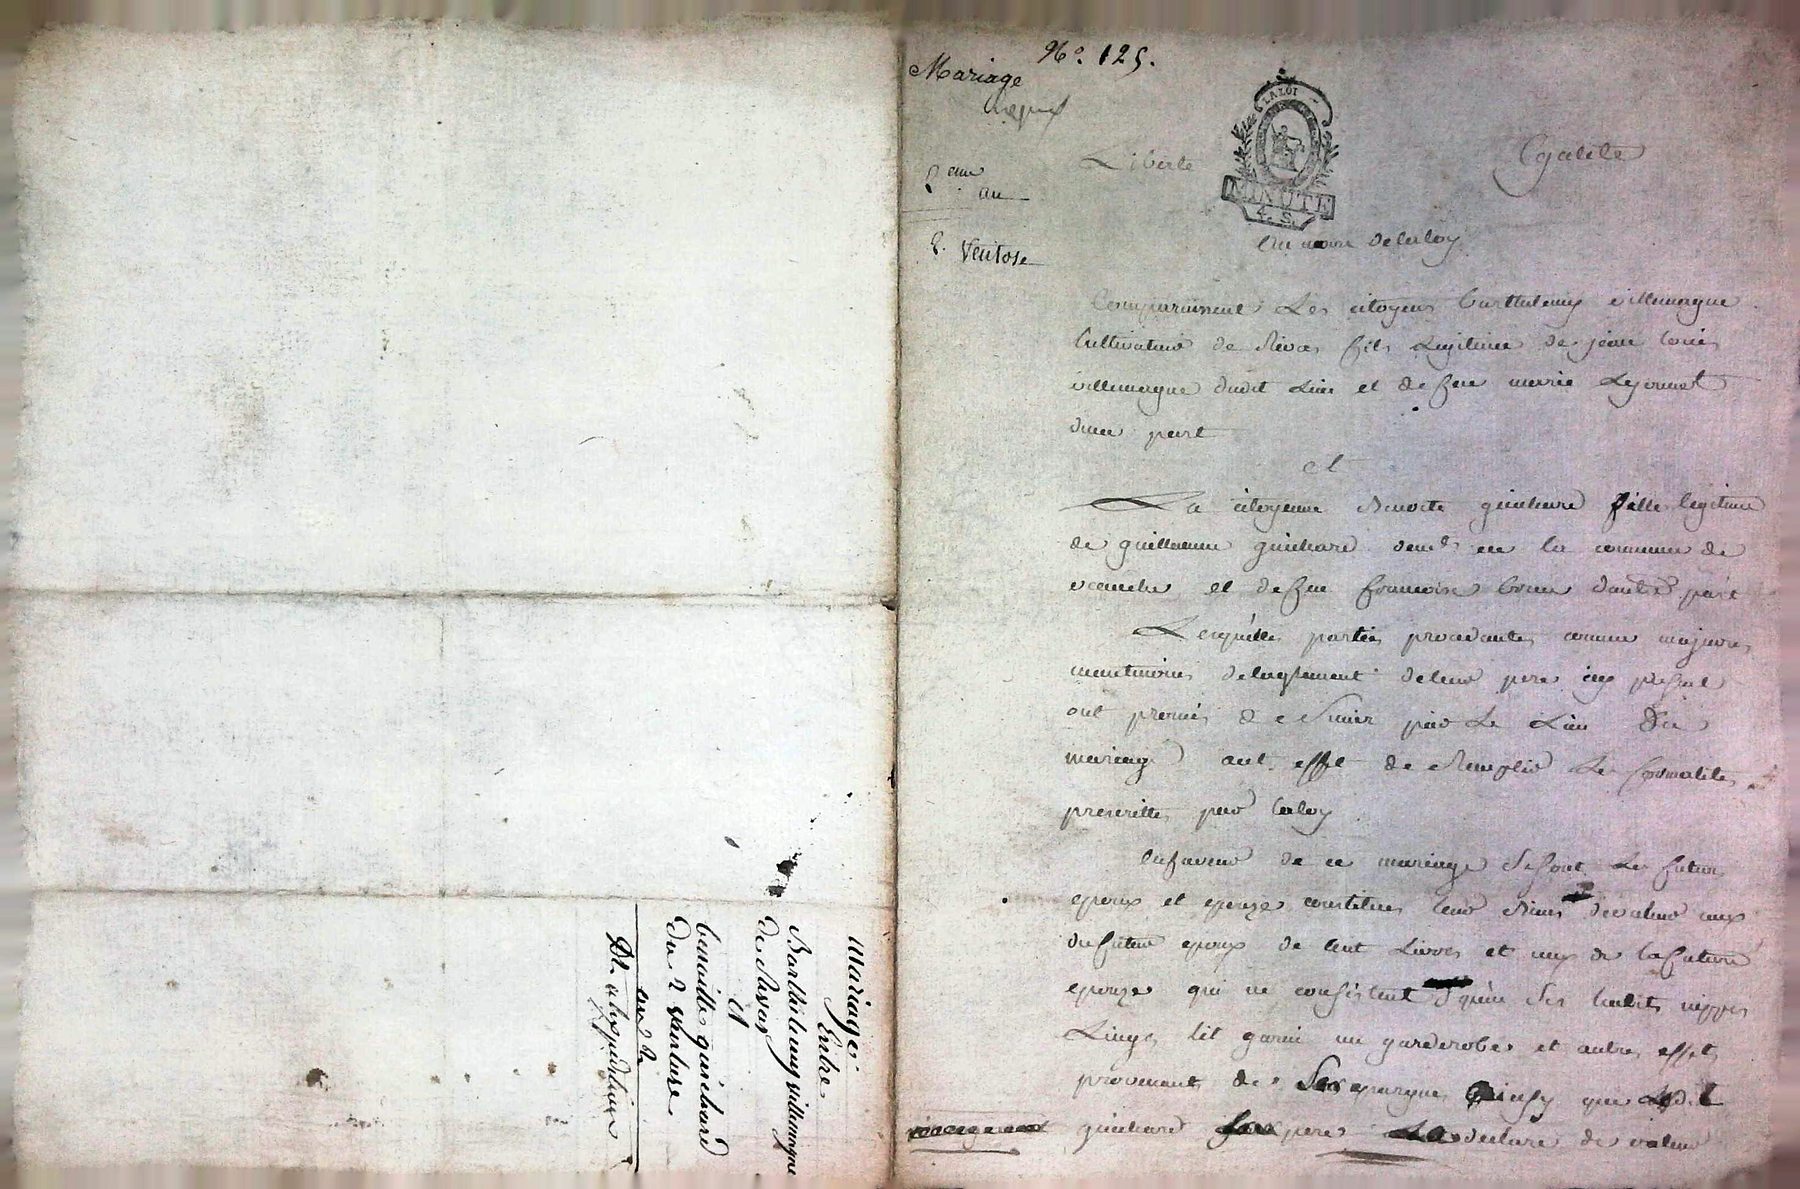 mariage
Entre
Barthelemy villemagne
de Rivas
Et
benoitte guichard
du 2 ventose
an 2e
Dt a Expedition
No. 125.
Mariage
LA LOI
MINUTE
4. S.
Liberte Egalite
2 eme
an
2. Ventose
Au nom de la loy
Comparaissent Les citoyens barthelemy villemagne
Cultivateur de Rivas fils Legitime de jean louis
villemagne dudit Lieu et de feue marie
dune part
et
La citoyenne Benoite guichard fille legitime
de guillaume guichard dem.t en la commune de
veauche et de feue francoise dautre part
Lesquelles parties procedantes comme majeures
de leur pere icy present
ont promis de sunir par Le Lien du
mariage aut effet de Remplir Les formalites
prescrittes par la loy
En faveur de ce mariage Se sont Les futurs
epoux et epouze constitues leurs Biens de valeur ceux
du futur epoux de cent Livres et ceux de la future
epouze qui ne consistent qu'en Ses habits nippes
Linges lit garni une garderobe et autres effets
provenant de Ses epargnes ainsy que Ledit
guichard pere Le declare de valeur